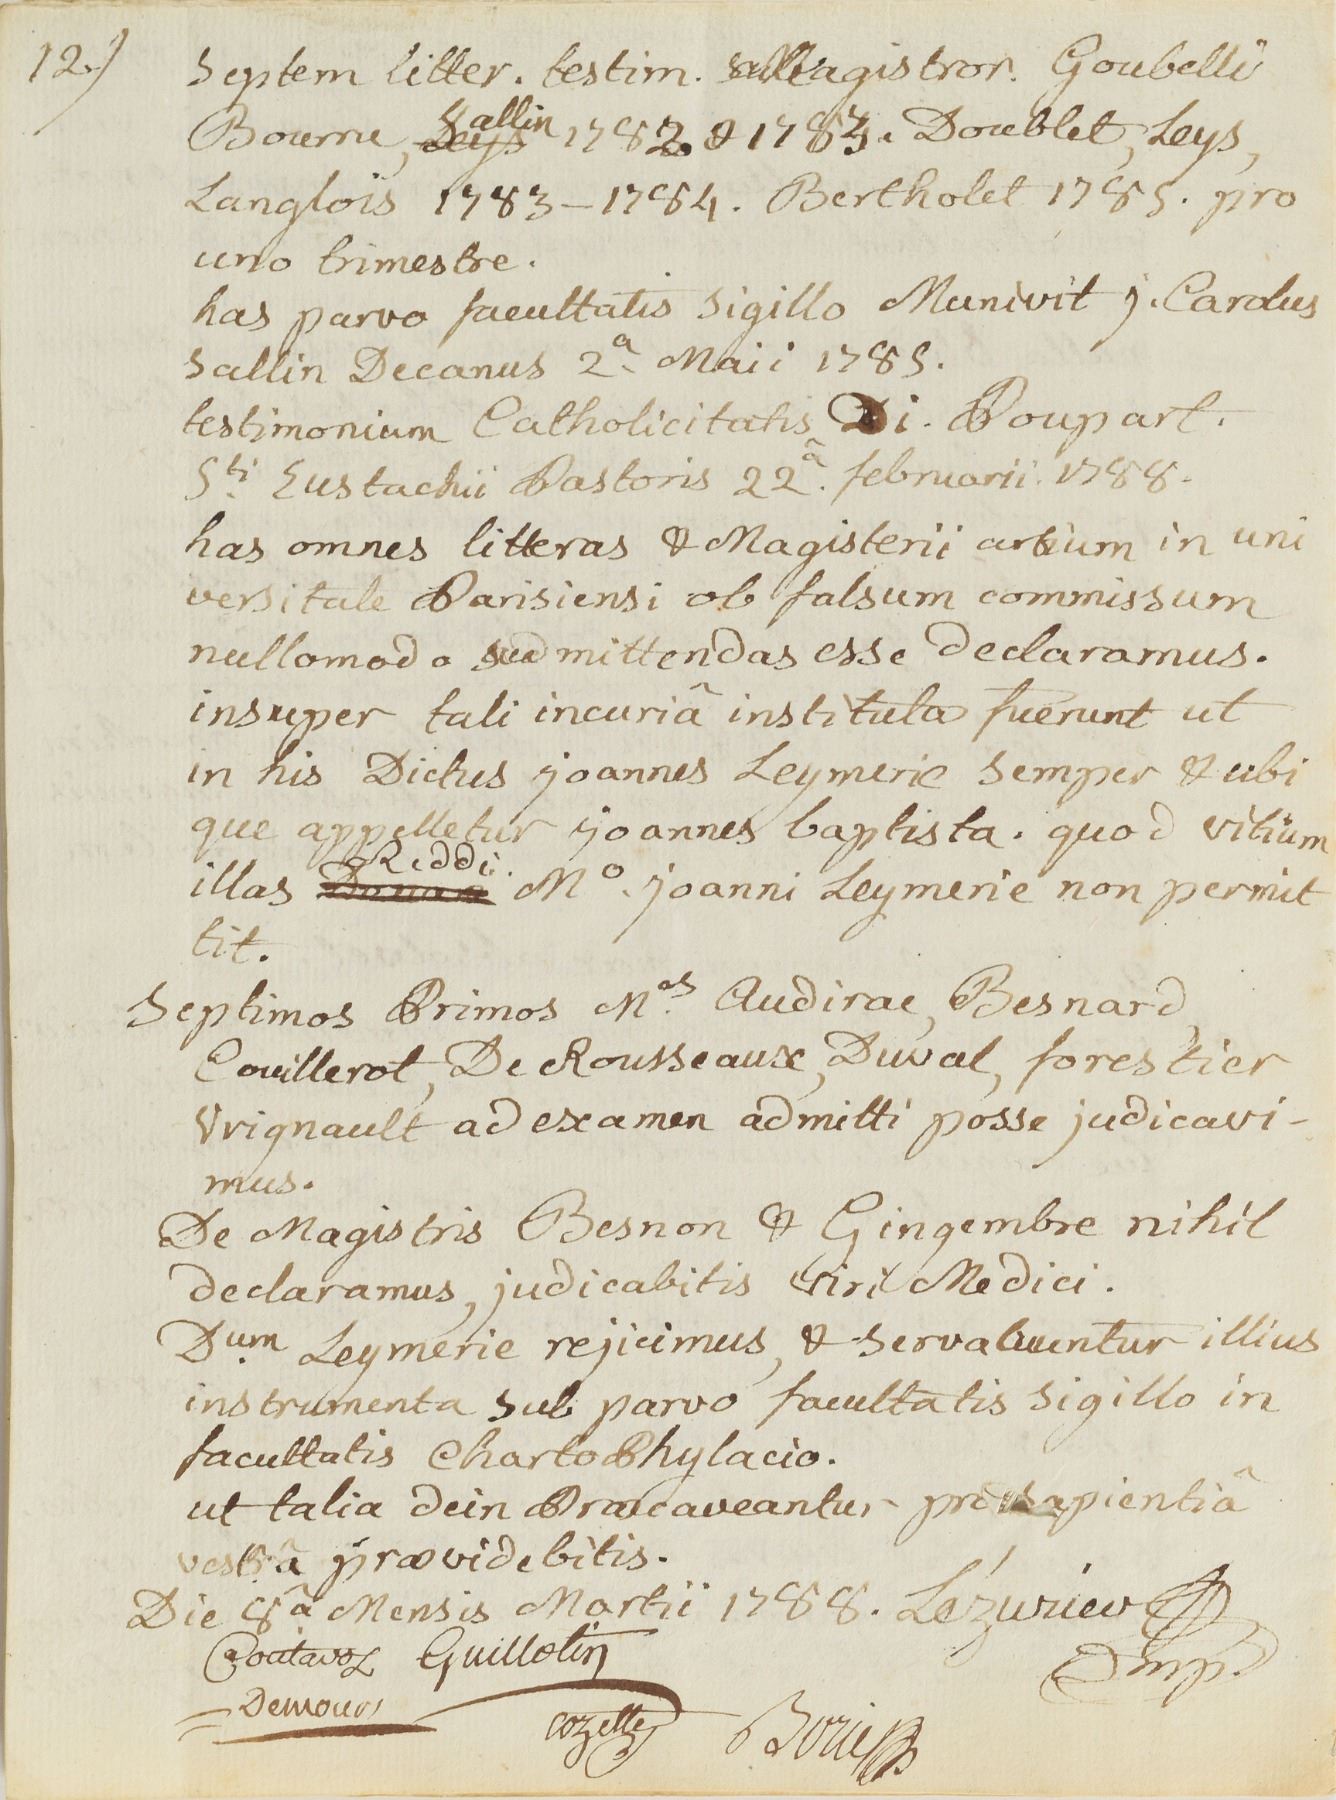 12.)
Septem litter. testim. Magistror. Goubelli
Bourru, Sallin 1782 & 1783. Doublet, Leys,
Langlois 1783 - 1784. Bertholet 1785. pro
uno trimestre.
has parvo facultatis sigillo Munivit j. Carolus
Sallin Decanus 2ª Maii 1785.
testimonium Catholicitatis Di. Poupart.
Sti. Eustachii Pastoris 22â. februarii 1788.
has omnes litteras & Magisterii artium in uni
versitate Parisiensi ob falsum commissum
nullomodo admittendas esse declaramus.
insuper tali incuriâ instituta fuerunt ut
in his Dictus joannes Leymerie semper & ubi
que appelletur joannes baptista. quod vitium
illas Reddi Mo. joanni Leymerie non permit
tit.
Septimos Primos M.os Audirac, Besnard,
Couillerot, De Rousseaux, Duval, forestier
Vrignault ad examen admitti posse judicavi-
mus.
De Magistris Besnon & Gingembre nihil
declaramus, judicabitis viri Medici.
Dum Leymerie rejicimus, & servabuntur illius
instrumenta sub parvo facultatis sigillo in
facultatis ChartoPhylacio.
ut talia dein Præcaveantur pro sapientiâ
vestrâ prævidebitis.
Die 8â Mensis Martii 1788. Lézurier
Guillotin
Demours
cozette
Borie